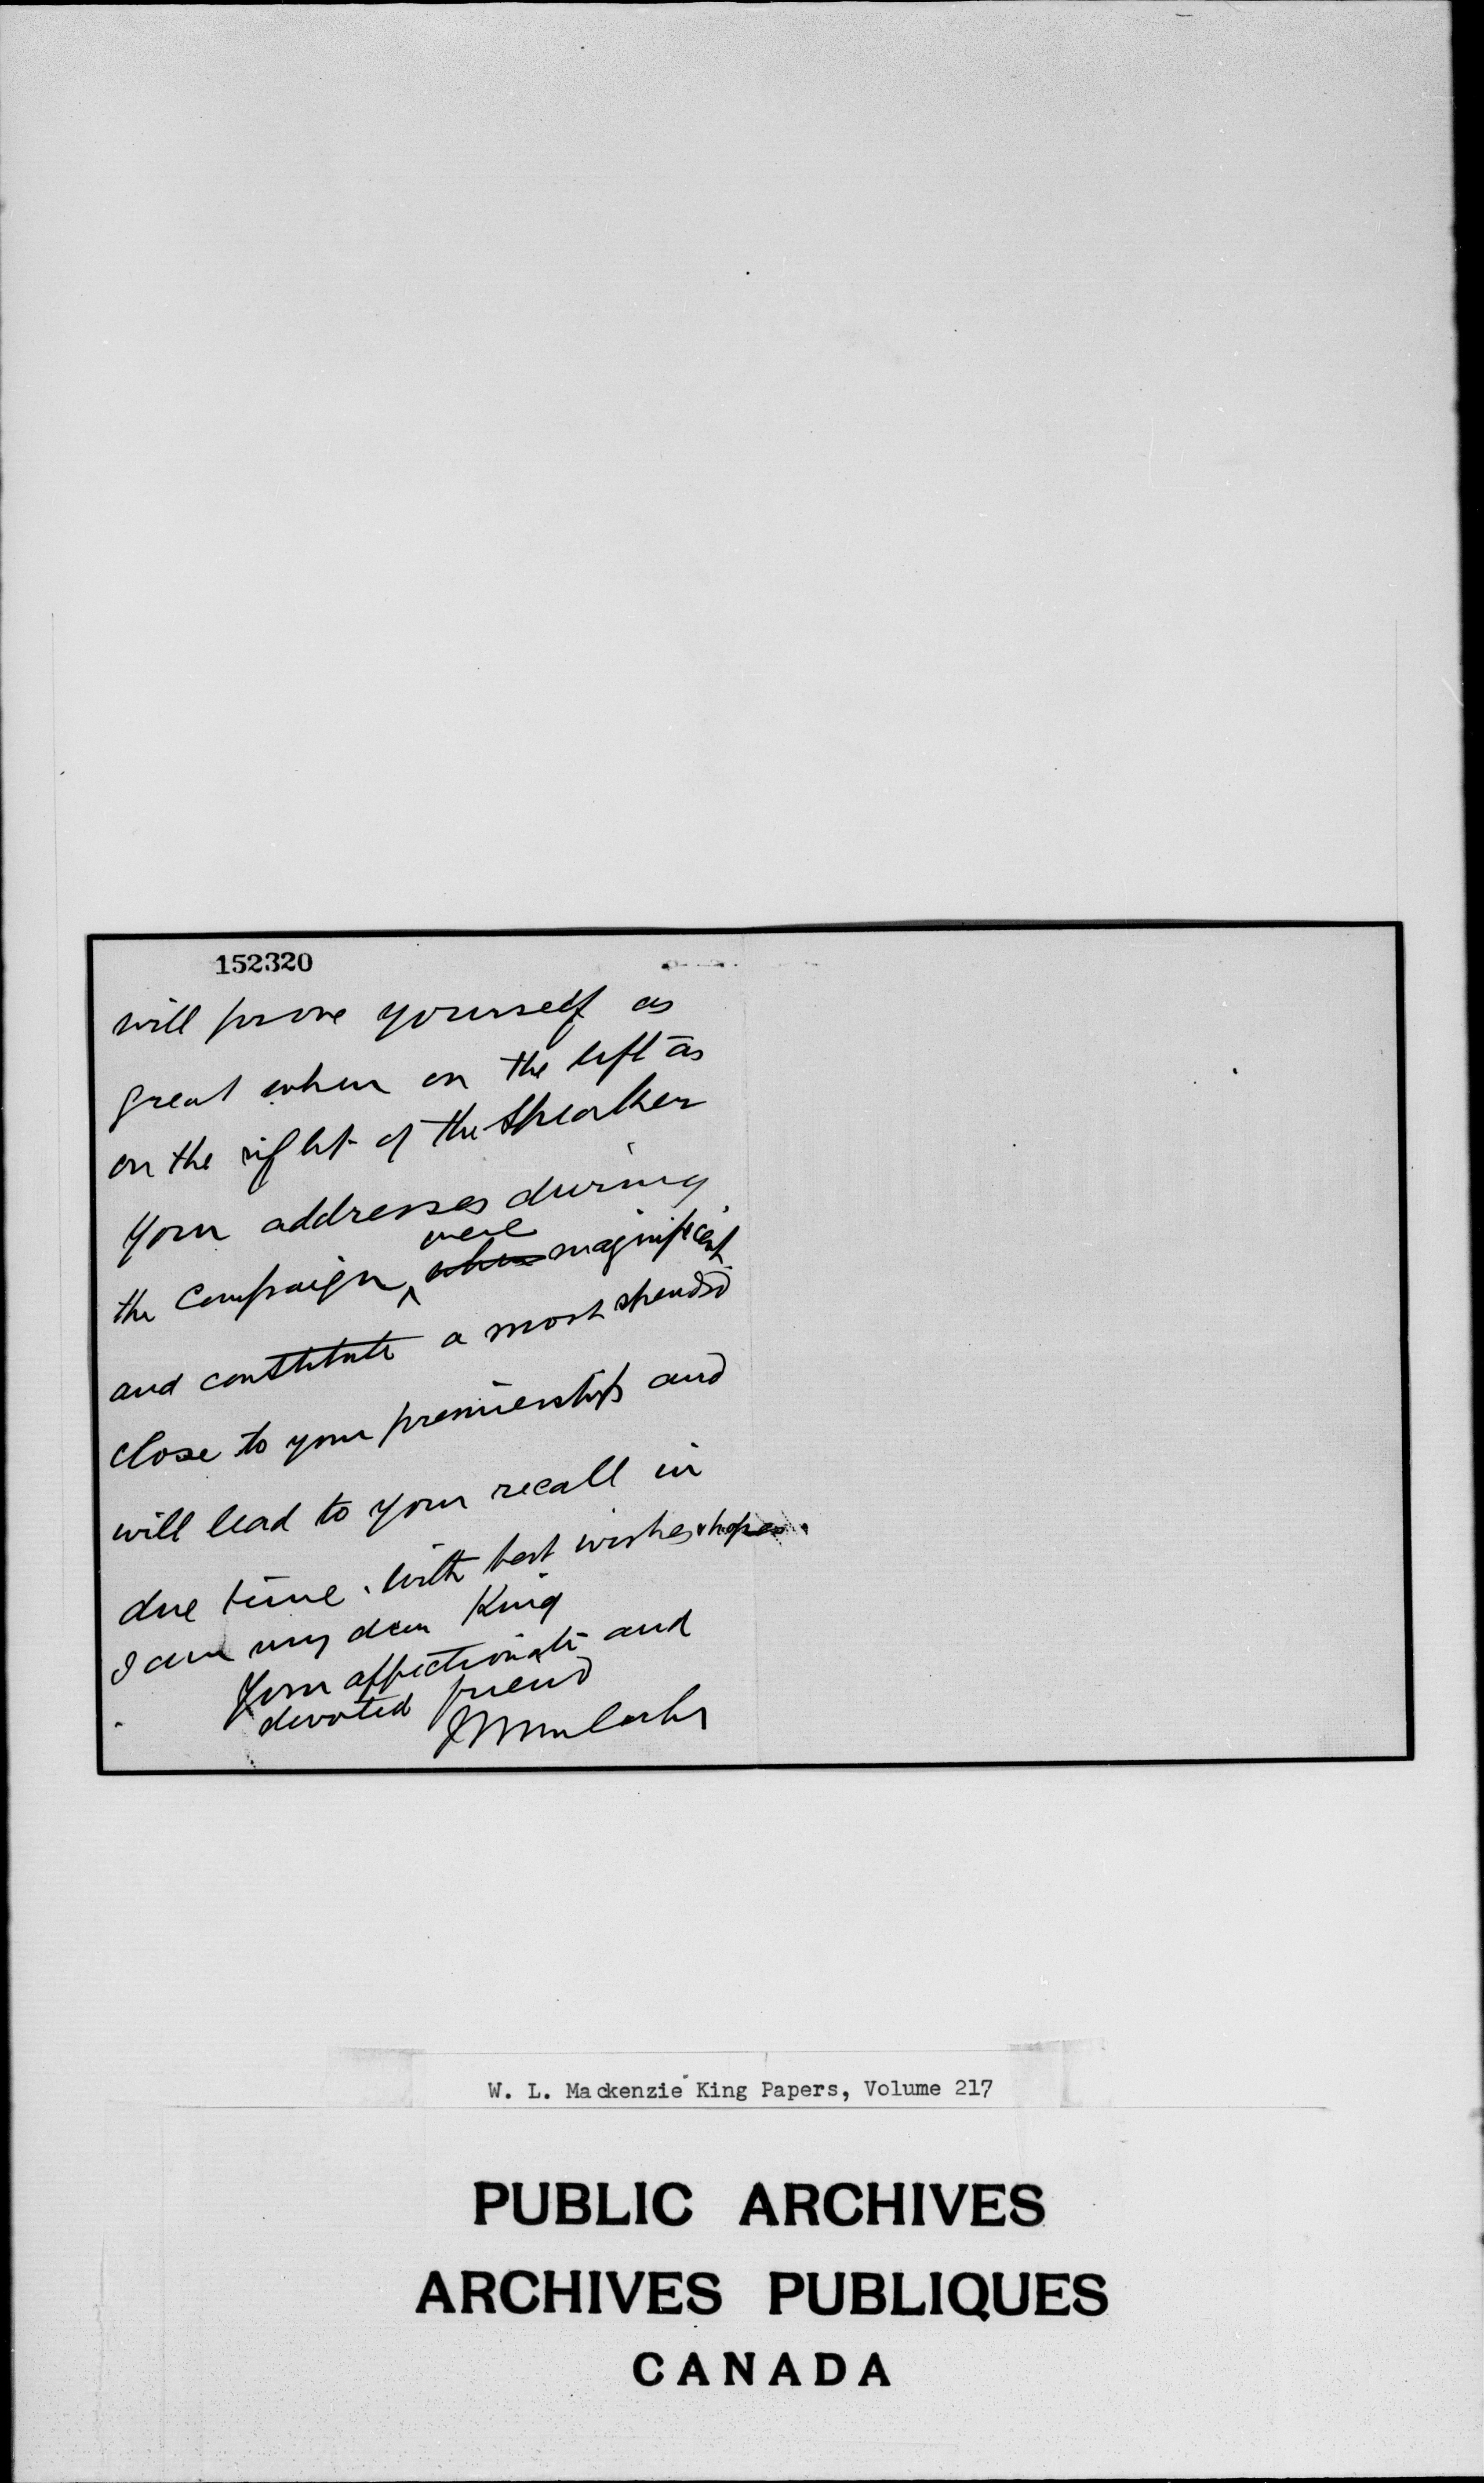 152320
will prove yourself as
great when on the left as
on the right of the Speaker
Your addresses during
the Campaign were magnificent
and constitute a most splendid
close to your premiership and
will lead to your recall in
due time. With best wishes & hopes
I am my dear King
Your affectionate and
devoted friend
W. L. Mackenzie King Papers, Volume 217
PUBLIC ARCHIVES
ARCHIVES PUBLIQUES
CANADA